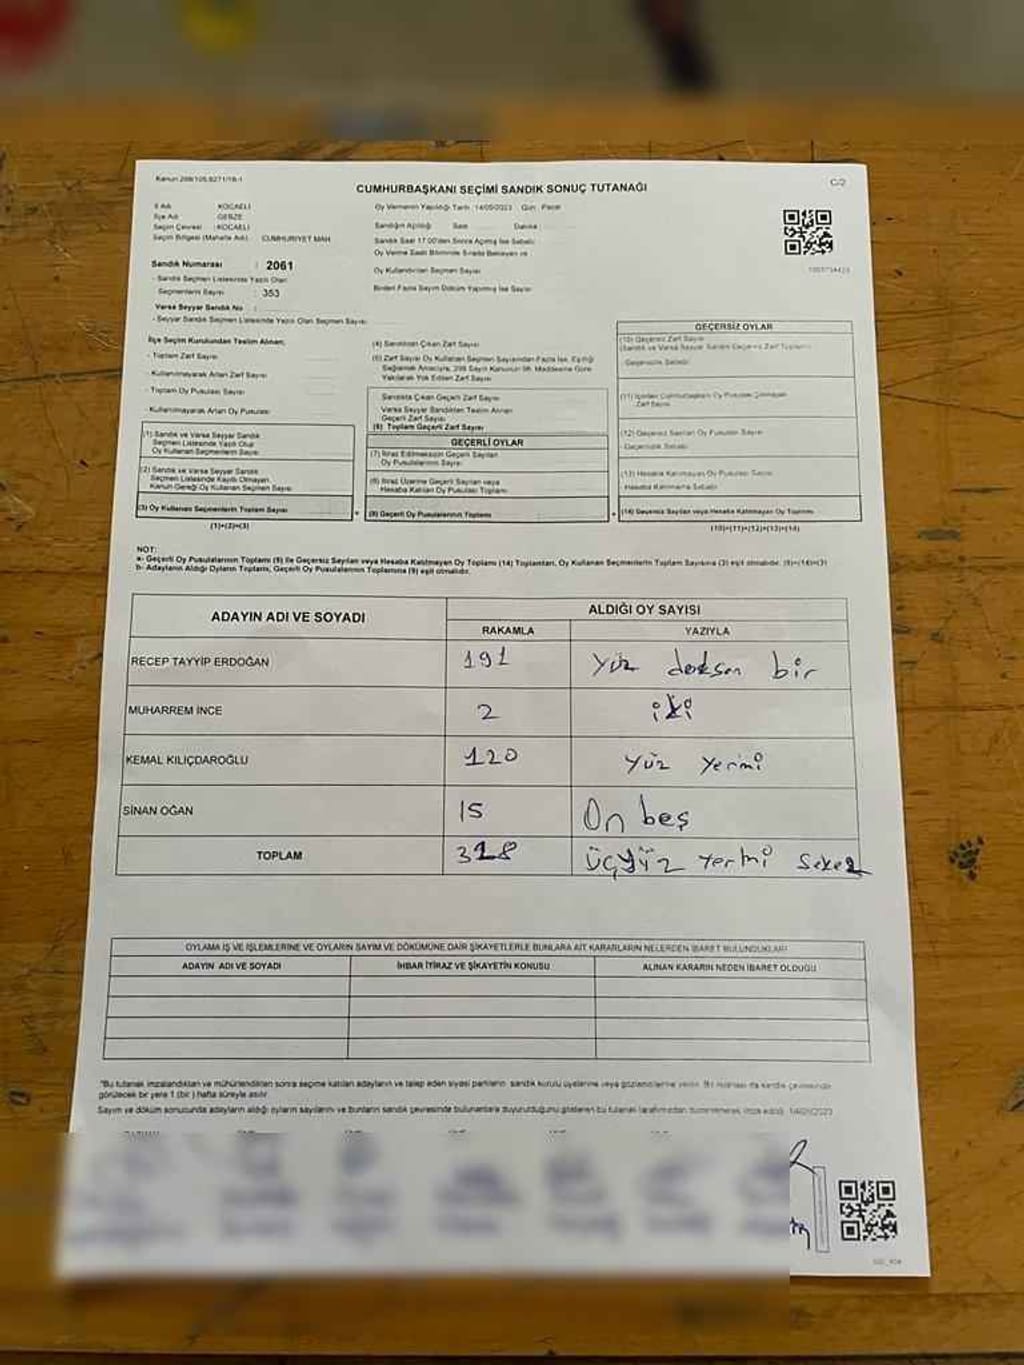 Kanun 298/105,6271/18-1
C/2
CUMHURBAŞKANI SEÇİMİ SANDIK SONUÇ TUTANAĞI
İl Adı KOCAELİ
İlçe Adı GEBZE
Seçim Çevresi : KOCAELİ
Seçim Bölgesi (Mahalle Adı) CUMHURİYET MAH
Sandık Numarası : 2061
- Sandık Seçmen Listesinde Yazılı Olan
Seçmenlerin Sayısı : 353
Varsa Seyyar Sandık No
- Seyyar Sandık Seçmen Listesinde Yazılı Olan Seçmen Sayısı
Oy Vermenin Yapıldığı Tarih : 14/05/2023 Gün : Pazar
Sandığın Açıldığı Saat Dakika :
Sandık Saat 17.00'den Sonra Açılmış İse Sebebi
Oy Verme Saati Bitiminde Sırada Bekleyen ve
Oy Kullandırılan Seçmen Sayısı
Birden Fazla Sayım Döküm Yapılmış İse Sayısı
İlçe Seçim Kurulundan Teslim Alınan;
- Toplam Zarf Sayısı
- Kullanılmayarak Artan Zarf Sayısı
- Toplam Oy Pusulası Sayısı
- Kullanılmayarak Artan Oy Pusulası
(1) Sandık ve Varsa Seyyar Sandık
Seçmen Listesinde Yazılı Olup
Oy Kullanan Seçmenlerin Sayısı
(2) Sandık ve Varsa Seyyar Sandık
Seçmen Listesinde Kayıtlı Olmayan,
Kanun Gereği Oy Kullanan Seçmen Sayısı
(3) Oy Kullanan Seçmenlerin Toplam Sayısı
(1)+(2)=(3)
(4) Sandıktan Çıkan Zarf Sayısı
(5) Zarf Sayısı Oy Kullanan Seçmen Sayısından Fazla İse, Eşitliği
Sağlamak Amacıyla, 298 Sayılı Kanunun 98. Maddesine Göre
Yakılarak Yok Edilen Zarf Sayısı
Sandıkta Çıkan Geçerli Zarf Sayısı
Varsa Seyyar Sandıktan Teslim Alınan
Geçerli Zarf Sayısı
(6) Toplam Geçerli Zarf Sayısı
GEÇERLİ OYLAR
(7) İtiraz Edilmeksizin Geçerli Sayılan
Oy Pusulalarının Sayısı
(8) İtiraz Üzerine Geçerli Sayılan veya
Hesaba Katılan Oy Pusulası Toplamı
(9) Geçerli Oy Pusulalarının Toplamı
GEÇERSİZ OYLAR
(10) Geçersiz Zarf Sayısı
(Sandık ve Varsa Seyyar Sandık Geçersiz Zarf Toplamı)
- Geçersizlik Sebebi
(11) İçinden Cumhurbaşkanı Oy Pusulası Çıkmayan
Zarf Sayısı
(12) Geçersiz Sayılan Oy Pusulası Sayısı
- Geçersizlik Sebebi
(13) Hesaba Katılmayan Oy Pusulası Sayısı
- Hesaba Katılmama Sebebi
(14) Geçersiz Sayılan veya Hesaba Katılmayan Oy Toplamı
(10)+(11)+(12)+(13)=(14)
NOT:
a- Geçerli Oy Pusulalarının Toplamı (9) ile Geçersiz Sayılan veya Hesaba Katılmayan Oy Toplamı (14) Toplamları, Oy Kullanan Seçmenlerin Toplam Sayısına (3) eşit olmalıdır. (9)+(14)=(3)
b- Adayların Aldığı Oyların Toplamı, Geçerli Oy Pusulalarının Toplamına (9) eşit olmalıdır.
ADAYIN ADI VE SOYADI ALDIĞI OY SAYISI
RAKAMLA YAZIYLA
RECEP TAYYİP ERDOĞAN 191 yüz doksan bir
MUHARREM İNCE 2 iki
KEMAL KILIÇDAROĞLU 120 yüz yermi
SİNAN OĞAN 15 On beş
TOPLAM 328 üçyüz yermi sekez
OYLAMA İŞ VE İŞLEMLERİNE VE OYLARIN SAYIM VE DÖKÜMÜNE DAİR ŞİKAYETLERLE BUNLARA AİT KARARLARIN NELERDEN İBARET BULUNDUKLARI
ADAYIN ADI VE SOYADI İHBAR İTİRAZ VE ŞİKAYETİN KONUSU ALINAN KARARIN NEDEN İBARET OLDUĞU
"Bu tutanak imzalandıktan ve mühürlendikten sonra seçime katılan adayların ve talep eden siyasi partilerin sandık kurulu üyelerine veya gözlemcilerine verilir. Bir nüshası da sandık çevresinde
görülecek bir yere 1 (bir) hafta süreyle asılır.
Sayım ve döküm sonucunda adayların aldığı oyların sayılarını ve bunların sandık çevresinde bulunanlara duyurulduğunu gösteren bu tutanak tarafımızdan düzenlenerek imza edildi. 14/05/2023